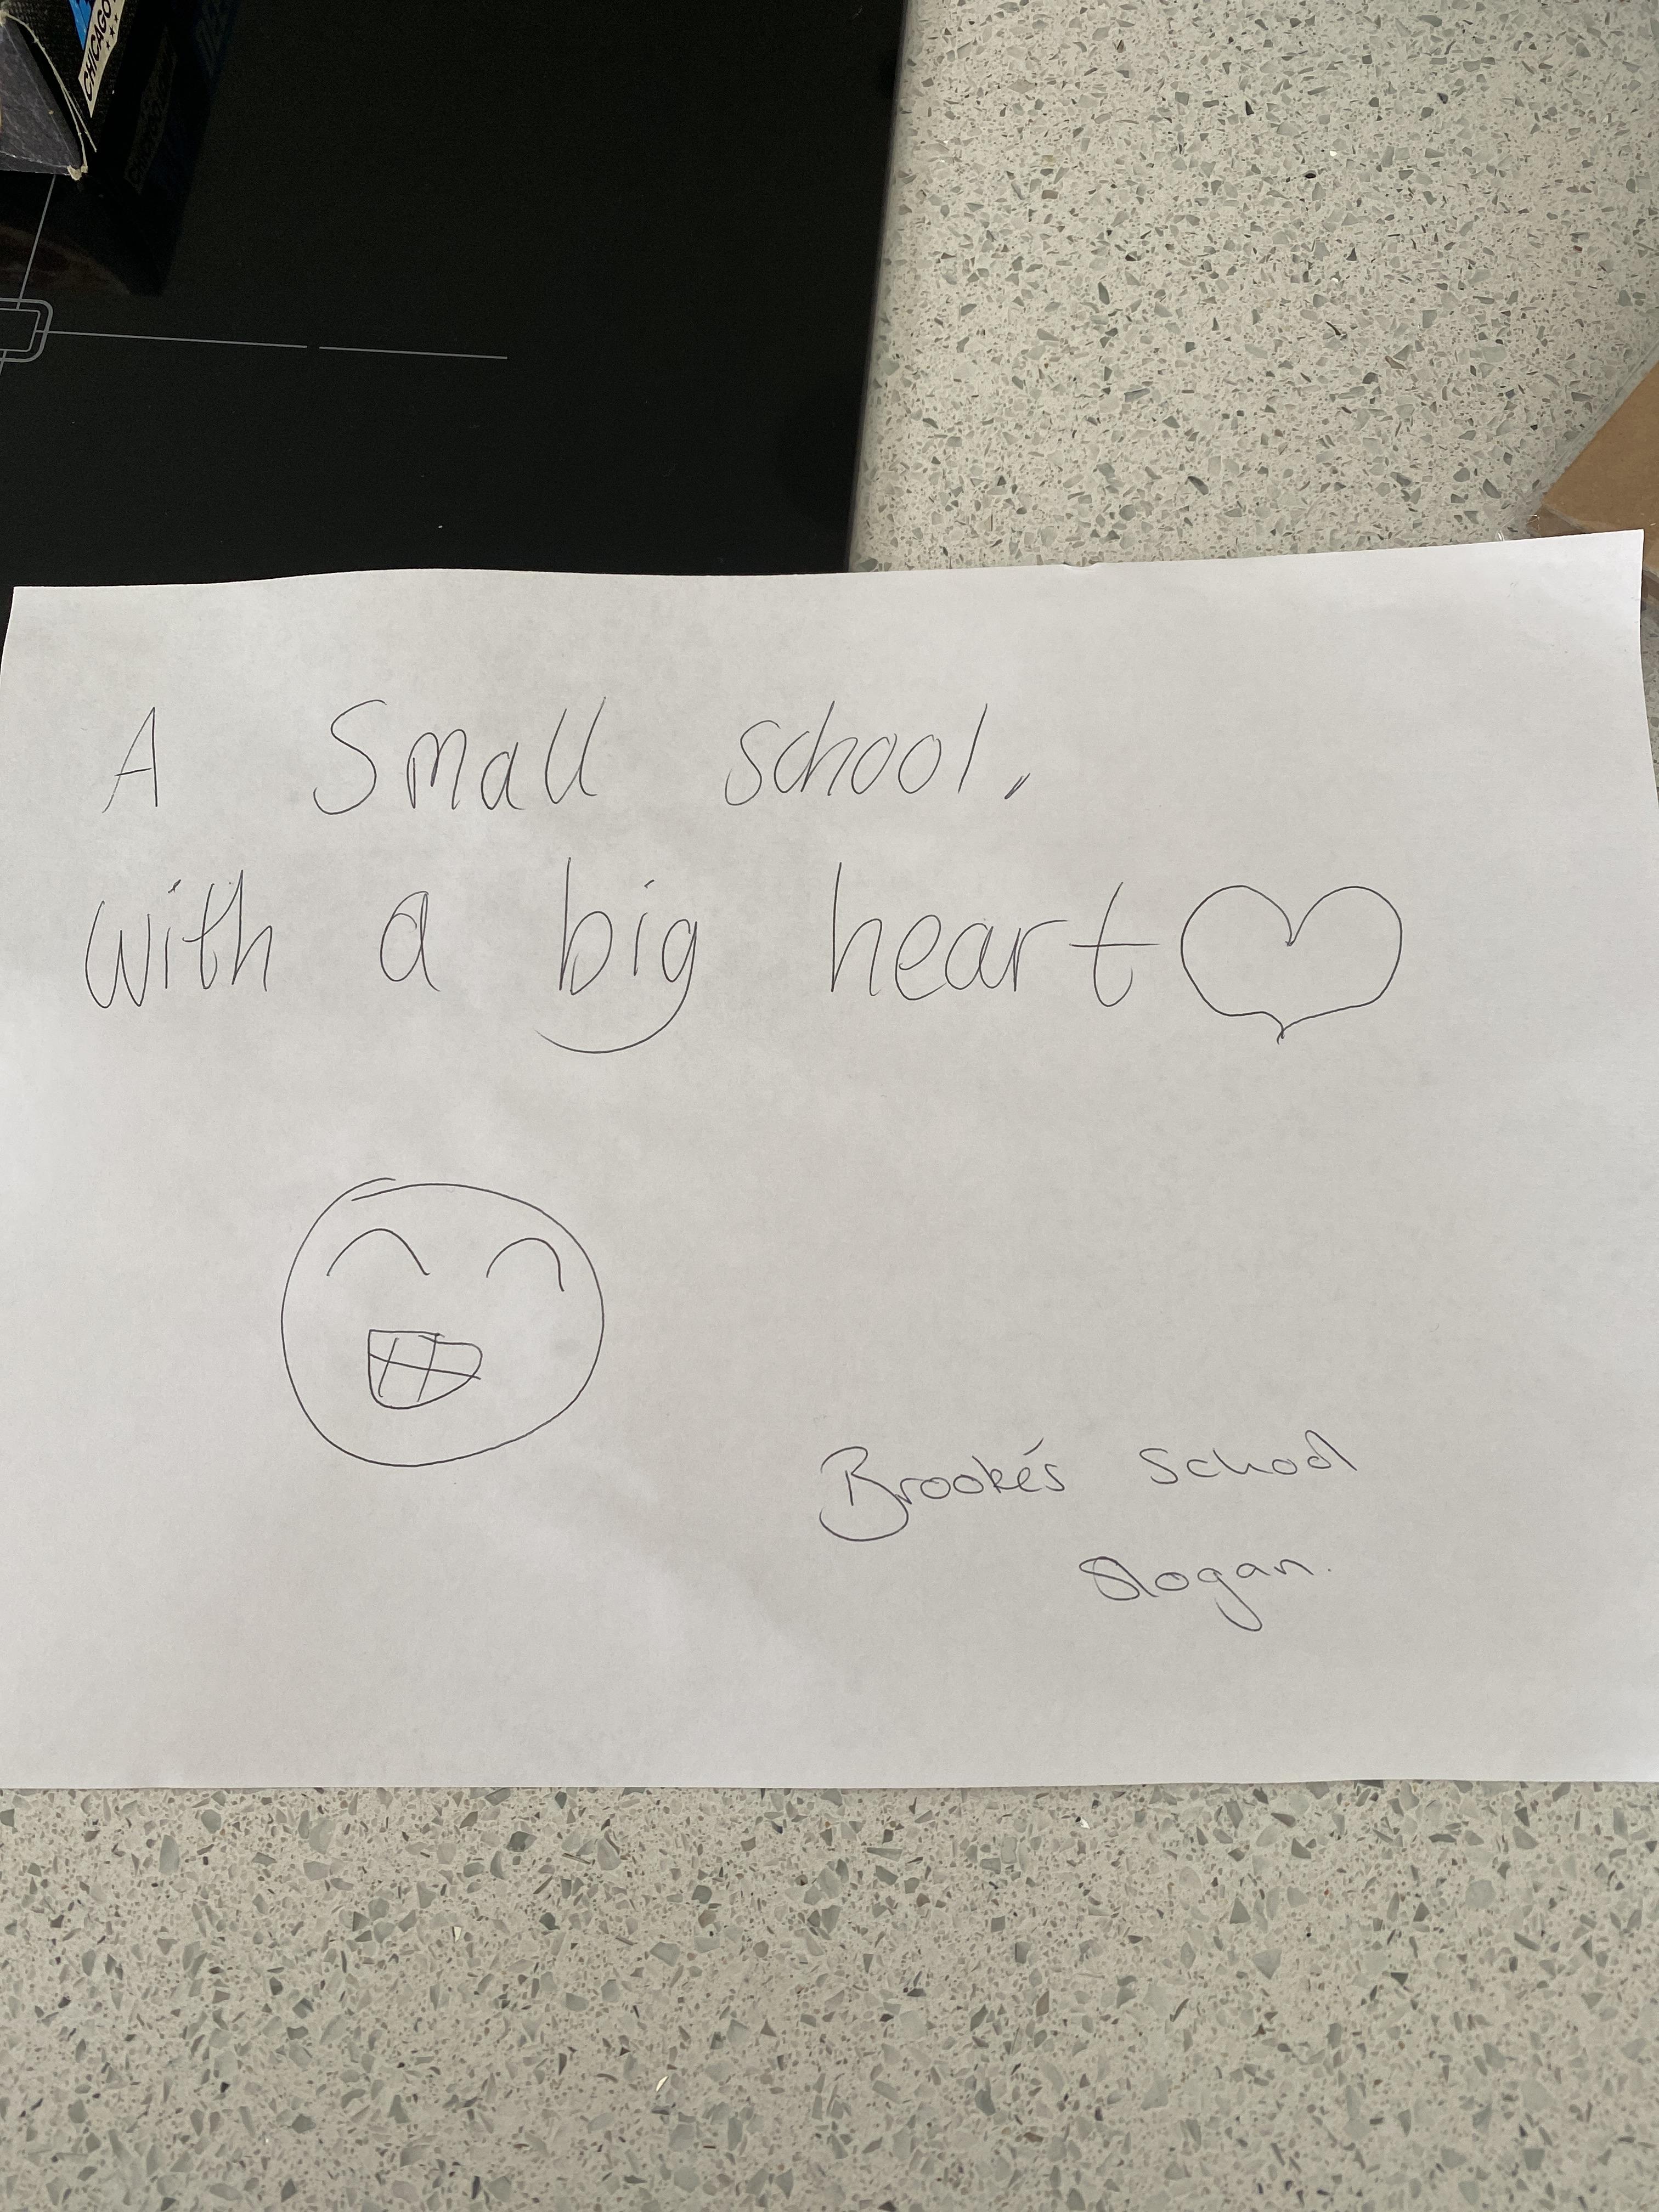 CHICAGO
A Small school,
with a big heart
Brooke's School
Slogan.